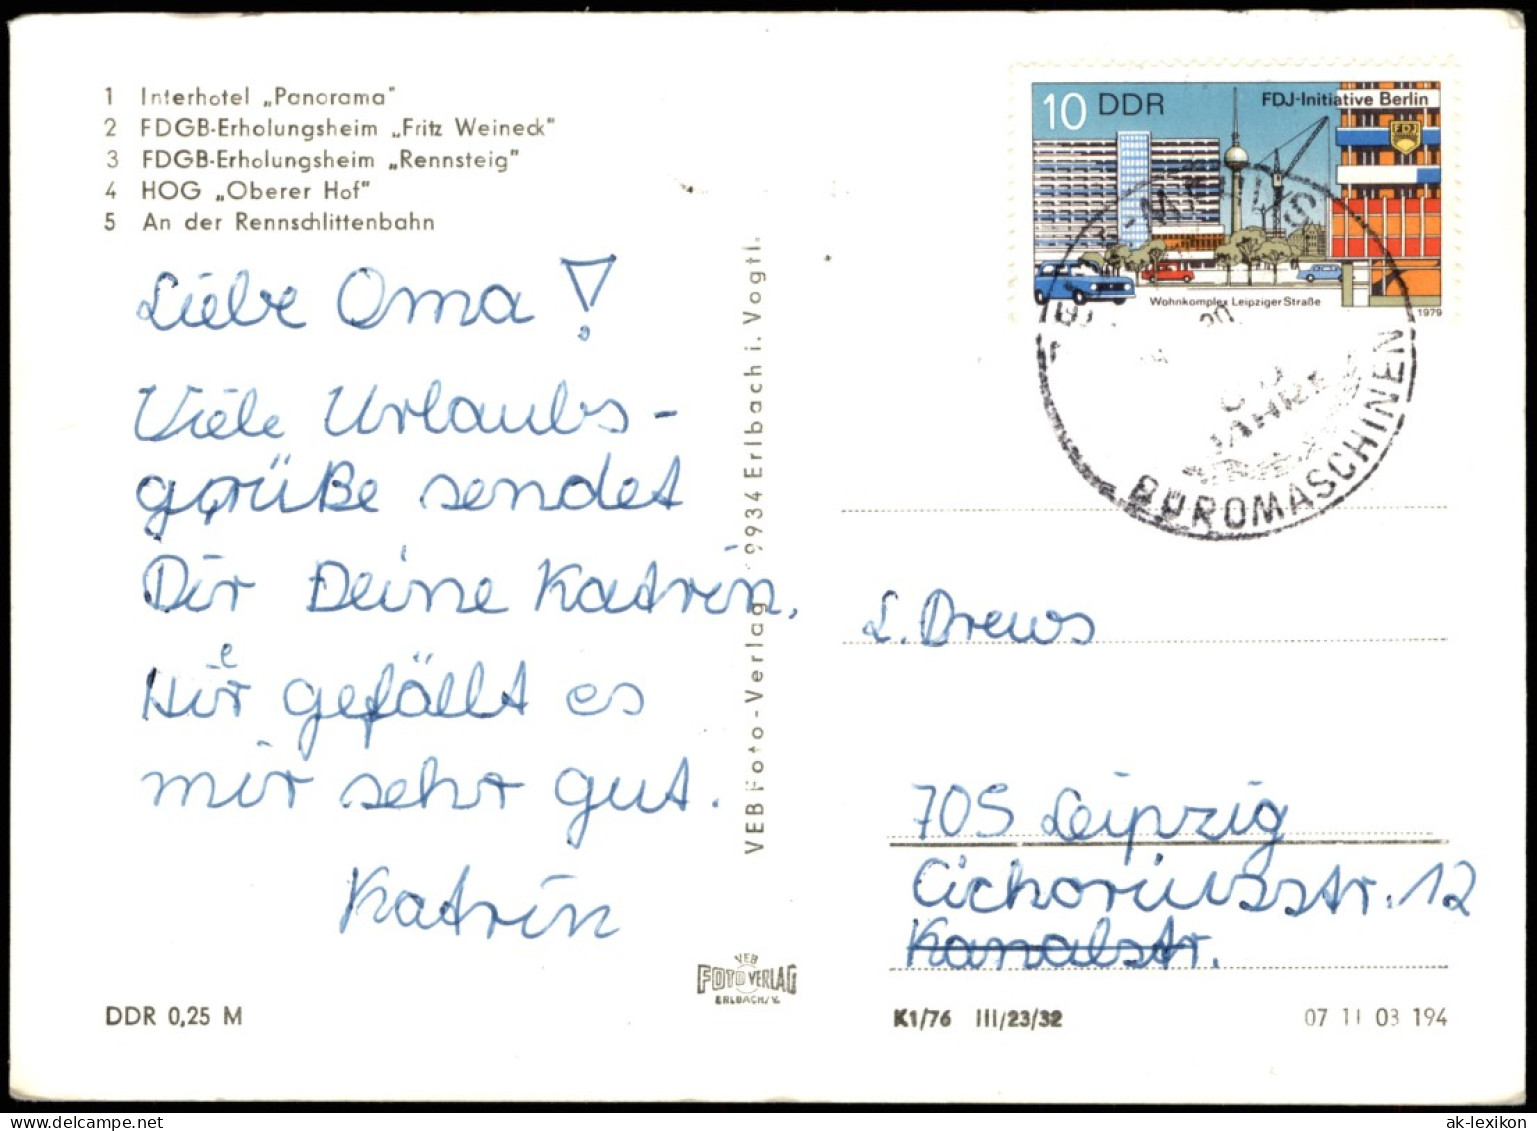 1 Interhotel „Panorama"
2 FDGB-Erholungsheim „Fritz Weineck"
3 FDGB-Erholungsheim „Rennsteig"
4 HOG „Oberer Hof"
5 An der Rennschlittenbahn
Liebe Oma!
Viele Urlaubs-
grüße sendet
Dir Deine Katrin.
Hier gefällt es
mir sehr gut.
Katrin
DDR 0,25 M
VEB Foto-Verlag 9934 Erlbach i. Vogtl.
VEB
FOTO VERLAG
ERLBACH/V.
10 DDR
FDJ-Initiative Berlin
FDJ
Wohnkomplex Leipziger Straße
1979
-MEHLIS
JAHRE
BÜROMASCHINEN
L. Drews
705 Leipzig
Cichoriusstr. 12
Kanalstr.
K1/76 III/23/32
07 11 03 194
ak-lexikon.com